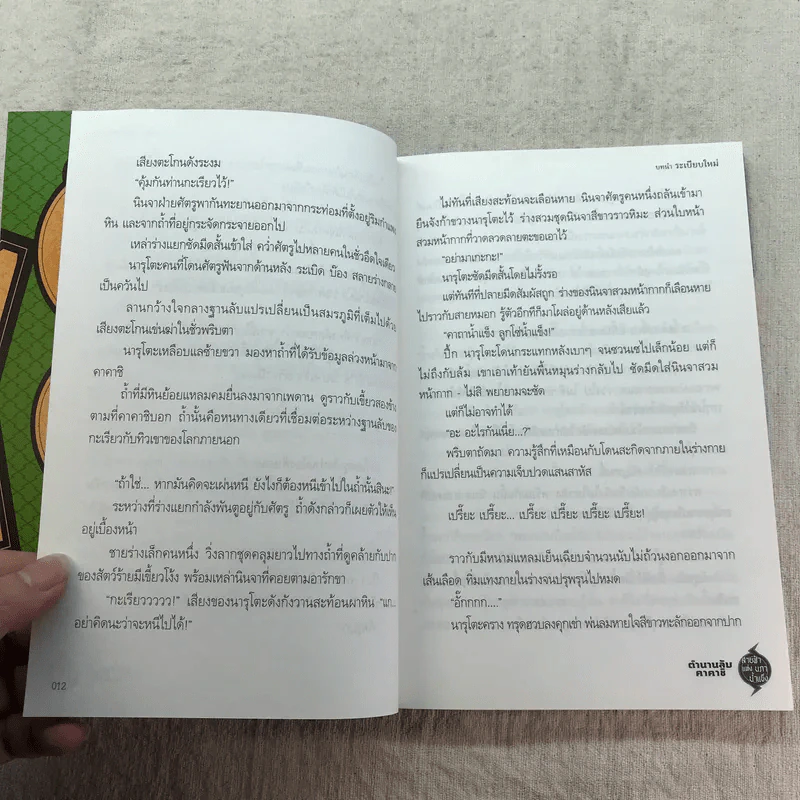 เสียงตะโกนดังระงม
“คุ้มกันท่านกะเรียวไว้!”
นินจาฝ่ายศัตรูพากันทะยานออกมาจากกระท่อมที่ตั้งอยู่ริมกำแพง
หิน และจากถ้ำที่อยู่กระจัดกระจายออกไป
เหล่าร่างแยกซัดมีดสั้นเข้าใส่ คว่ำศัตรูไปหลายคนในชั่วอึดใจเดียว
นารูโตะคนที่โดนศัตรูฟันจากด้านหลัง ระเบิด บ๊อง สลายร่างกลาย
เป็นควันไป
ลานกว้างใจกลางฐานลับแปรเปลี่ยนเป็นสมรภูมิที่เต็มไปด้วย
เสียงตะโกนเข่นฆ่าในชั่วพริบตา
นารูโตะเหลือบแลซ้ายขวา มองหาถ้ำที่ได้รับข้อมูลล่วงหน้ามาจาก
คาคาชิ
ถ้ำที่มีหินย้อยแหลมคมยื่นลงมาจากเพดาน ดูราวกับเขี้ยวสองข้าง
ตามที่คาคาชิบอก ถ้ำนั้นคือหนทางเดียวที่เชื่อมต่อระหว่างฐานลับของ
กะเรียวกับทิวเขาของโลกภายนอก
“ถ้าใช่... หากมันคิดจะเผ่นหนี ยังไงก็ต้องหนีเข้าไปในถ้ำนั้นสินะ!”
ระหว่างที่ร่างแยกกำลังพันตูอยู่กับศัตรู ถ้ำดังกล่าวก็เผยตัวให้เห็น
อยู่เบื้องหน้า
ชายร่างเล็กคนหนึ่ง วิ่งลากชุดคลุมยาวไปทางถ้ำที่ดูคล้ายกับปาก
ของสัตว์ร้ายมีเขี้ยวโง้ง พร้อมเหล่านินจาที่คอยตามอารักขา
“กะเรียววววว!” เสียงของนารูโตะดังกังวานสะท้อนผาหิน “แก...
อย่าคิดนะว่าจะหนีไปได้!”
012
บทนำ ระเบียบใหม่
ไม่ทันที่เสียงสะท้อนจะเลือนหาย นินจาศัตรูคนหนึ่งถลันเข้ามา
ยืนจังก้าขวางนารูโตะไว้ ร่างสวมชุดนินจาสีขาวราวหิมะ ส่วนใบหน้า
สวมหน้ากากที่วาดลวดลายตะขอเอาไว้
“อย่ามาเกะกะ!”
นารูโตะซัดมีดสั้นโดยไม่รั้งรอ
แต่ทันทีที่ปลายมีดสัมผัสถูก ร่างของนินจาสวมหน้ากากก็เลือนหาย
ไปราวกับสายหมอก รู้ตัวอีกทีก็มาโผล่อยู่ด้านหลังเสียแล้ว
“คาถาน้ำแข็ง ลูกโซ่น้ำแข็ง!”
ปึ้ก นารูโตะโดนกระแทกหลังเบาๆ จนซวนเซไปเล็กน้อย แต่ก็
ไม่ถึงกับล้ม เขาเอาเท้ายันพื้นหมุนร่างกลับไป ซัดมีดใส่นินจาสวม
หน้ากาก - ไม่สิ พยายามจะซัด
แต่ก็ไม่อาจทำได้
“อะ อะไรกันเนี่ย...?”
พริบตาถัดมา ความรู้สึกที่เหมือนกับโดนสะกิดจากภายในร่างกาย
ก็แปรเปลี่ยนเป็นความเจ็บปวดแสนสาหัส
เปรี๊ยะ เปรี๊ยะ... เปรี๊ยะ เปรี๊ยะ เปรี๊ยะ เปรี๊ยะ!
ราวกับมีหนามแหลมเย็นเฉียบจำนวนนับไม่ถ้วนงอกออกมาจาก
เส้นเลือด ทิ่มแทงภายในร่างจนปรุพรุนไปหมด
“อั๊กกกก....”
นารูโตะคราง ทรุดฮวบลงคุกเข่า พ่นลมหายใจสีขาวทะลักออกจากปาก
ตำนานลับ
คาคาชิ
สายฟ้า
แห่ง นภา
น้ำแข็ง